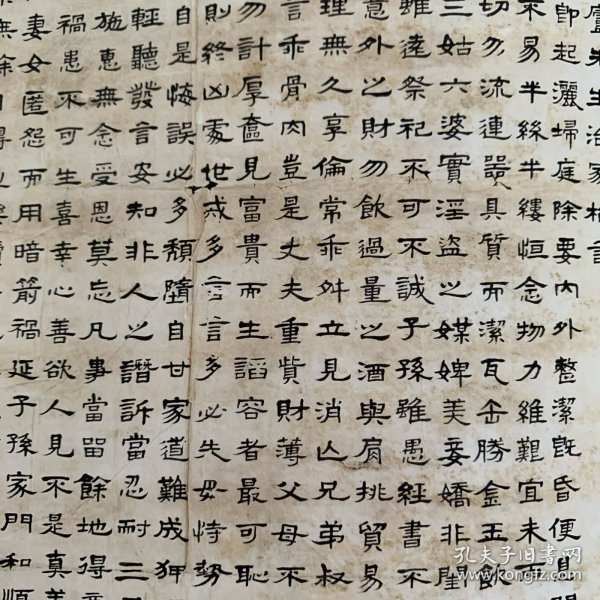 廬先生治家格言
即起灑埽庭除要內外整潔既昏便息關
不易半絲半縷恒念物力維艱宜未雨
切勿流連器具質而潔瓦缶勝金玉飲
三姑六婆實淫盜之媒婢美妾嬌非閨
雖遠祭祀不可不誠子孫雖愚經書不
意外之財勿飲過量之酒與肩挑貿易
理無久享倫常乖舛立見消亡兄弟叔
言乖骨肉豈是丈夫重貲財薄父母不
勿計厚奩見富貴而生諂容者最可恥
則終凶處世戒多言言多必失毋恃勢
自是悔誤必多頹隳自甘家道難成狎
輕聽發言安知非人之譖訴當忍耐三
施惠無念受恩莫忘凡事當留餘地得
禍患不可生喜幸心善欲人見不是真善
妻女匿怨而用暗箭禍延子孫家門和順
無餘
孔夫子旧书网
www.kongfz.com